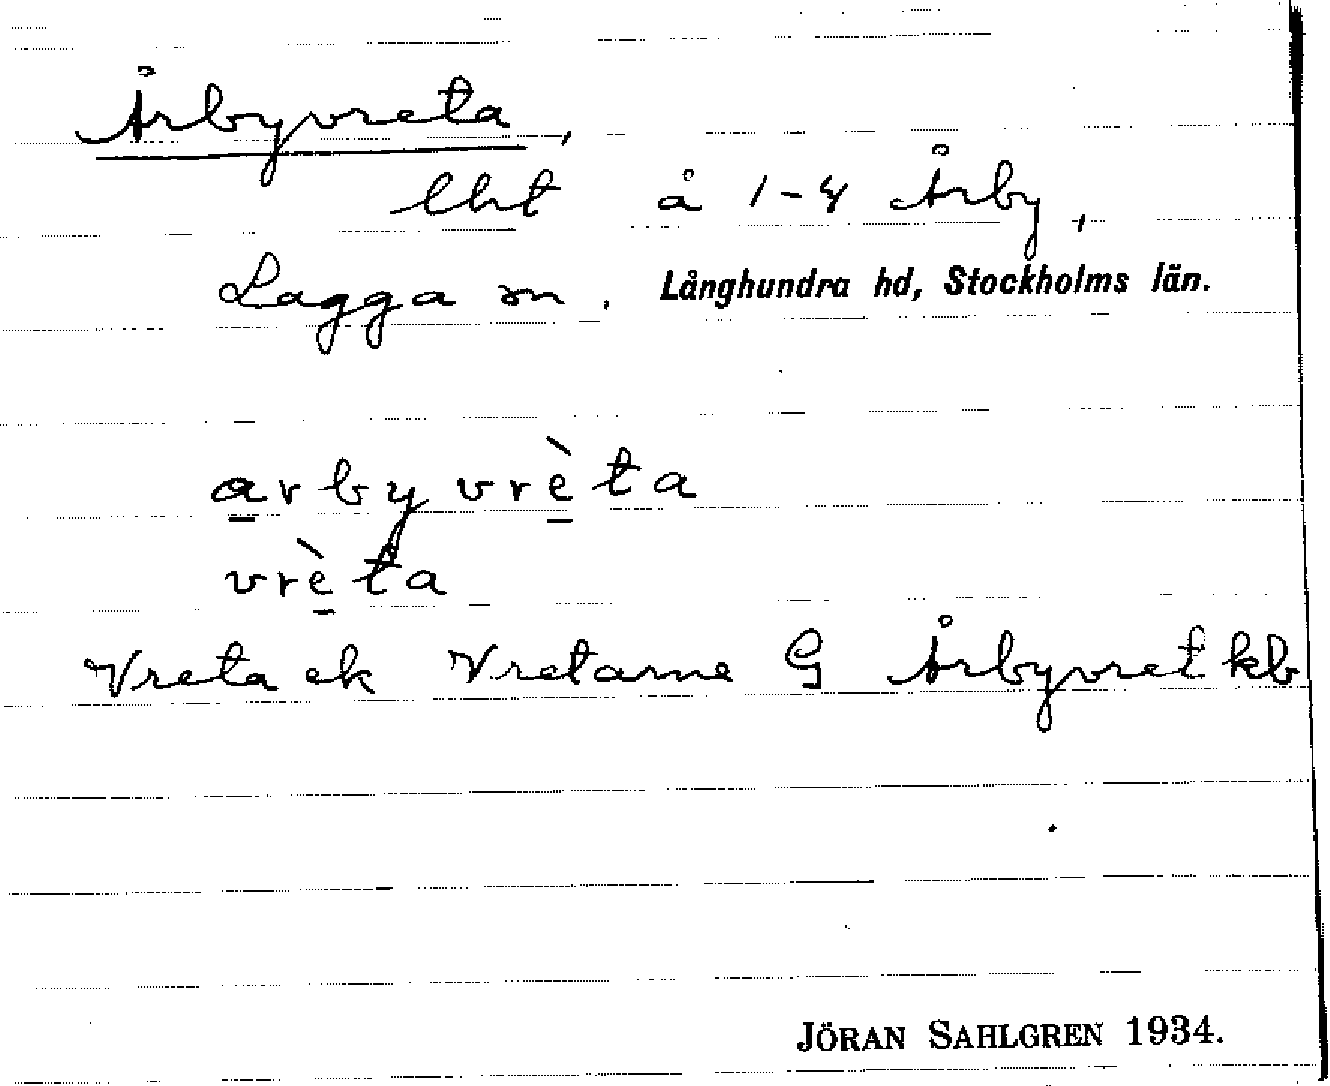 Årbyvreta,
lht å 1-4 Årby,
Lagga sn. Långhundra hd, Stockholms län.
a̲rbyvrè̲ta
vrè̲ta
Vreta ek Vretarne G Årbyvret kb
JÖRAN SAHLGREN 1934.